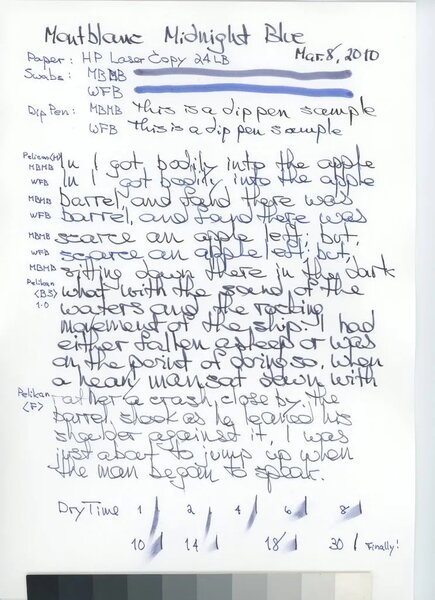 Montblanc Midnight Blue
Mar. 8, 2010
Paper: HP LaserCopy 24LB
Swabs: MBMB
WFB
DipPen: MBMB This is a dip pen sample
WFB This is a dip pen sample
Pelikan(M) MBMB In I got bodily into the apple
WFB In I got bodily into the apple
MBMB barrel, and found there was
WFB barrel, and found there was
MBMB scarce an apple left; but,
WFB scarce an apple left; but,
MBMB sitting down there in the dark
Pelikan (BB) 1.0 what with the sound of the
waters and the rocking
movement of the ship, I had
either fallen asleep or was
on the point of doing so, when
a heavy man sat down with
Pelikan (F) rather a crash close by. The
barrel shook as he leaned his
shoulder against it, I was
just about to jump up when
the man began to speak.
Dry Time 1 2 4 6 8
10 14 18 30 Finally!